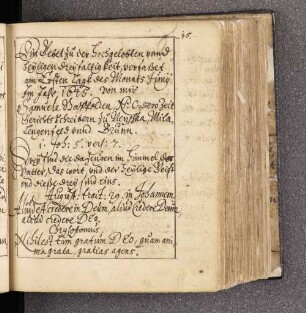 Ein Gebet zu der Hochgelobten vnnd
Heyligen Dreyfaltigkeit, verfasset
am Ersten Tage des Monats Junij
im Jahr 1643. von mir
Samuele
Gerichtsschreibern zu
vnnd Brünn.
1. Joh: 5. vers: 7.
Drey sind die da zeugen im himmel der
Vatter, das wort, vnd der heylige Geist
vnd diesse drey sind eins.
August: tract: 29. in Johannem.
Aliud est credere in Deum, aliud credere Deum
aliud credere DEO.
Chrysostomus.
Nihil est tam gratum DEO, quam ani-
ma grata, gratias agens.